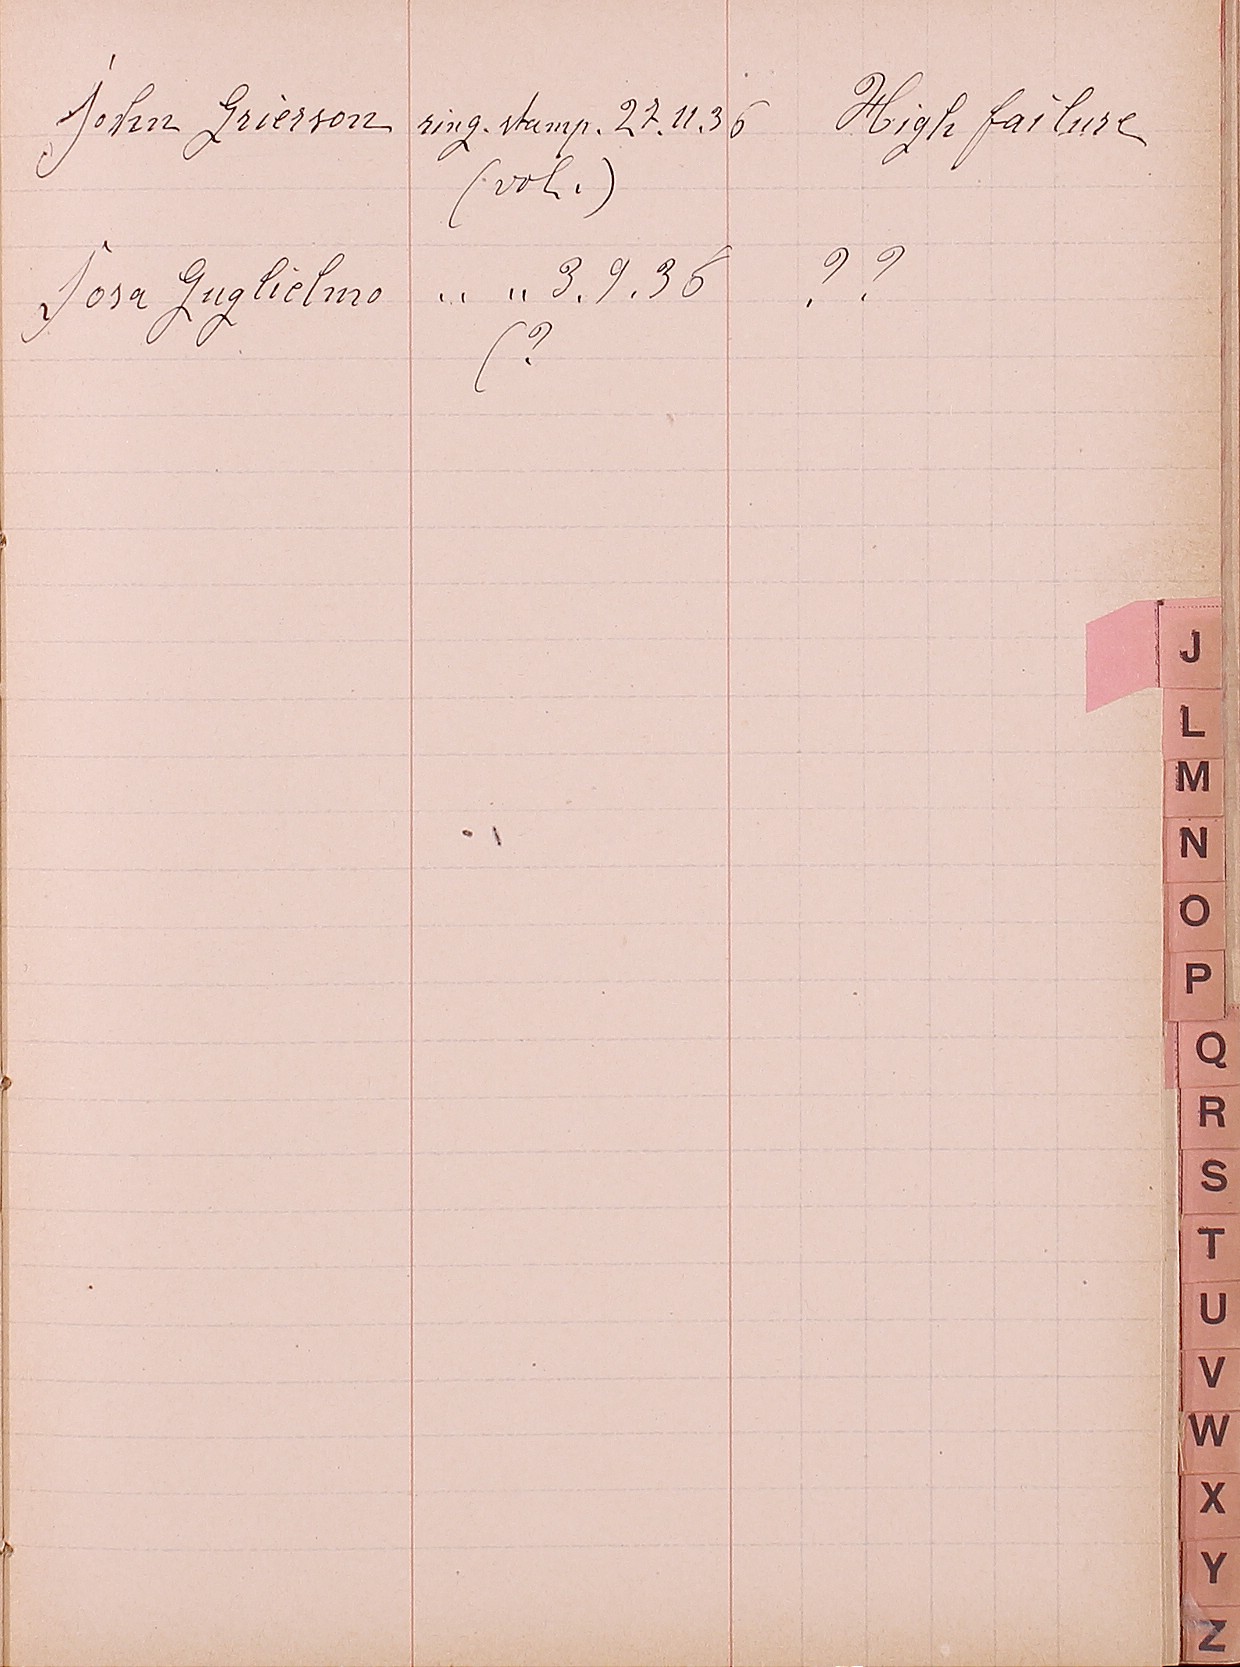 John Grierson ring. stamp. 27.11.36 High failure
(vol.)
Josa Guglielmo " " 3.9.36 ? ?
(?
J
L
M
N
O
P
Q
R
S
T
U
V
W
X
Y
Z